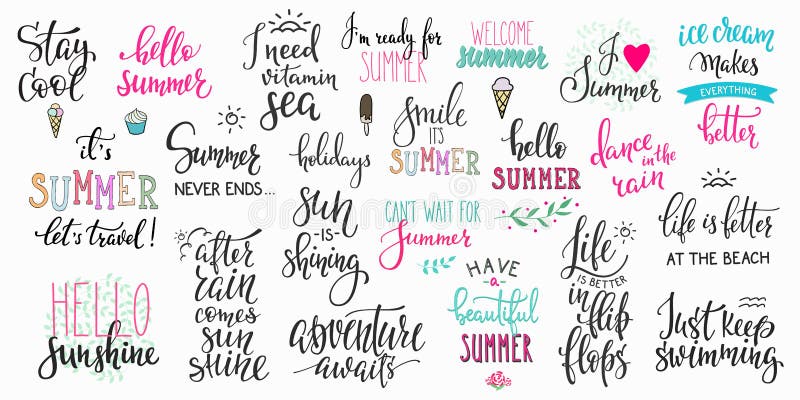 Stay
Cool
hello
summer
I need
vitamin
sea
I'm ready for
SUMMER
WELCOME
summer
I
Summer
ice cream
makes
EVERYTHING
better
it's
SUMMER
let's travel!
Summer
NEVER ENDS...
holidays
smile
IT'S
SUMMER
hello
SUMMER
dance in the
rain
sun
-IS-
shining
CAN'T WAIT FOR
Summer
life is better
AT THE BEACH
HELLO
sunshine
after
rain
comes
sun
shine
adventure
awaits
HAVE
-a-
beautiful
SUMMER
Life
IS BETTER
in flip
flops
Just keep
swimming
dreamstime